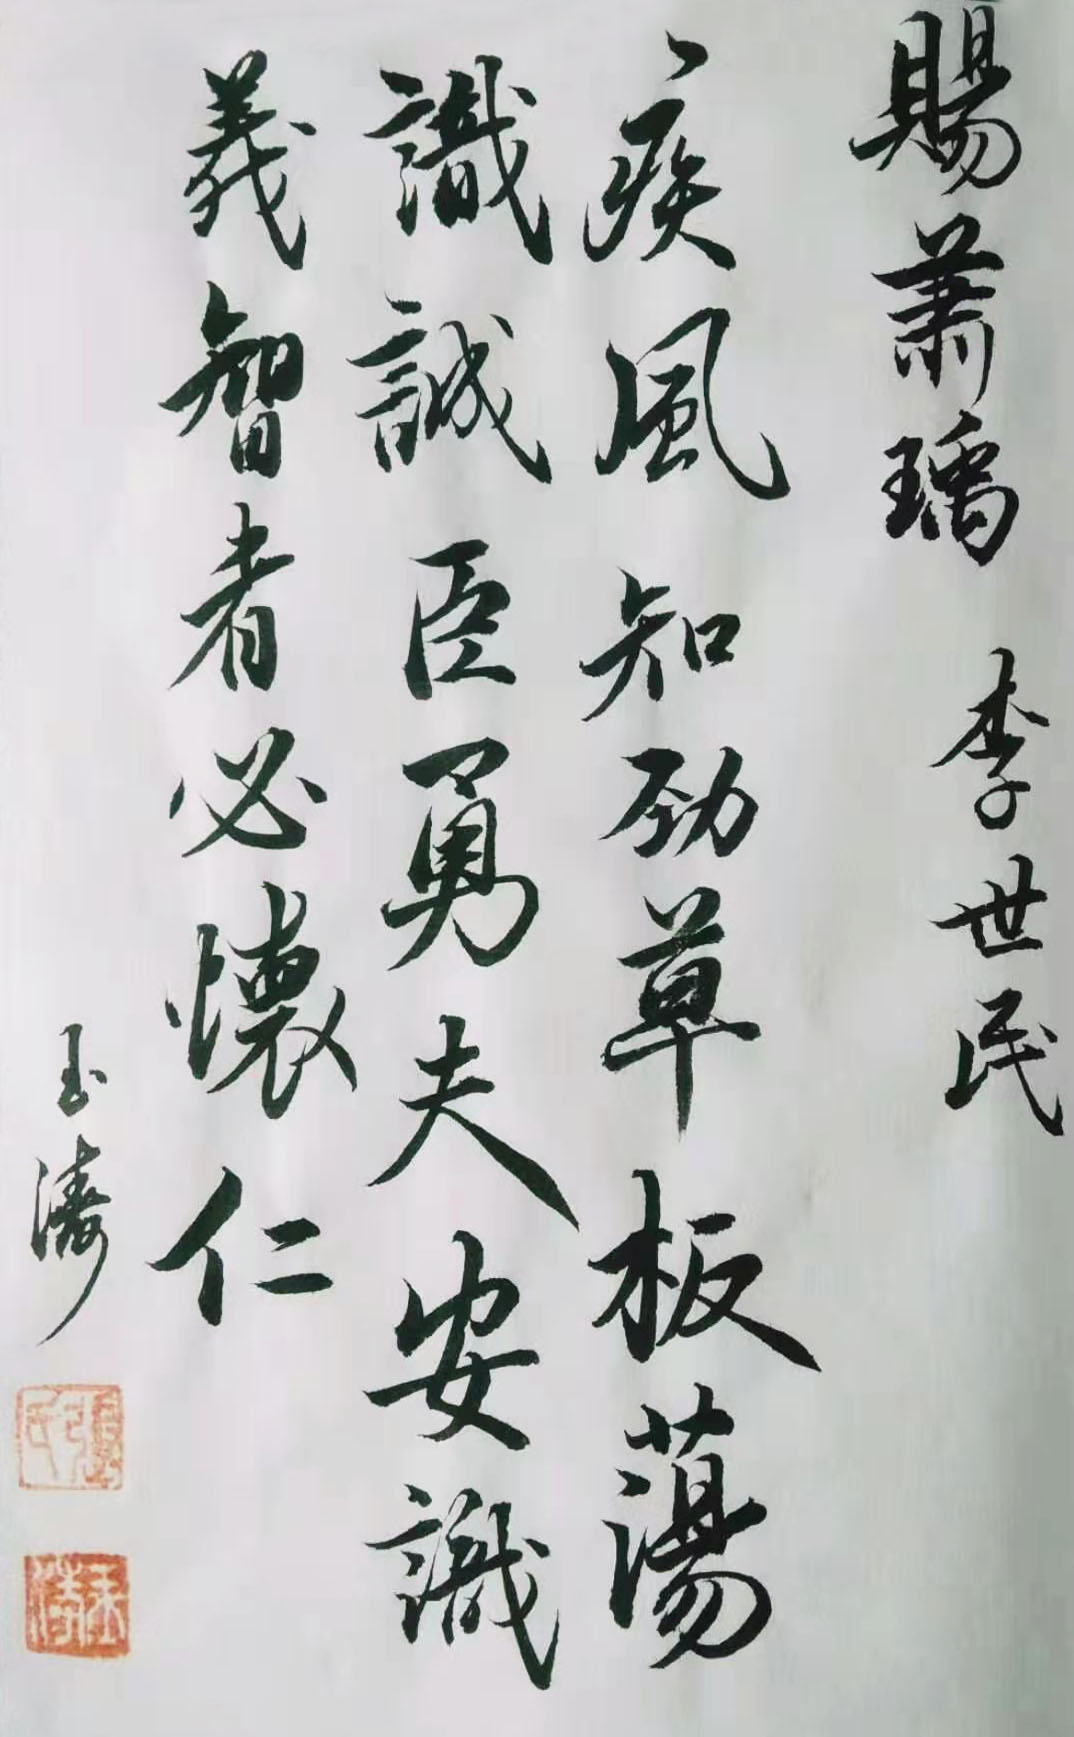 賜蕭瑀 李世民
疾風知勁草板蕩
識誠臣勇夫安識
義智者必懷仁
玉濤